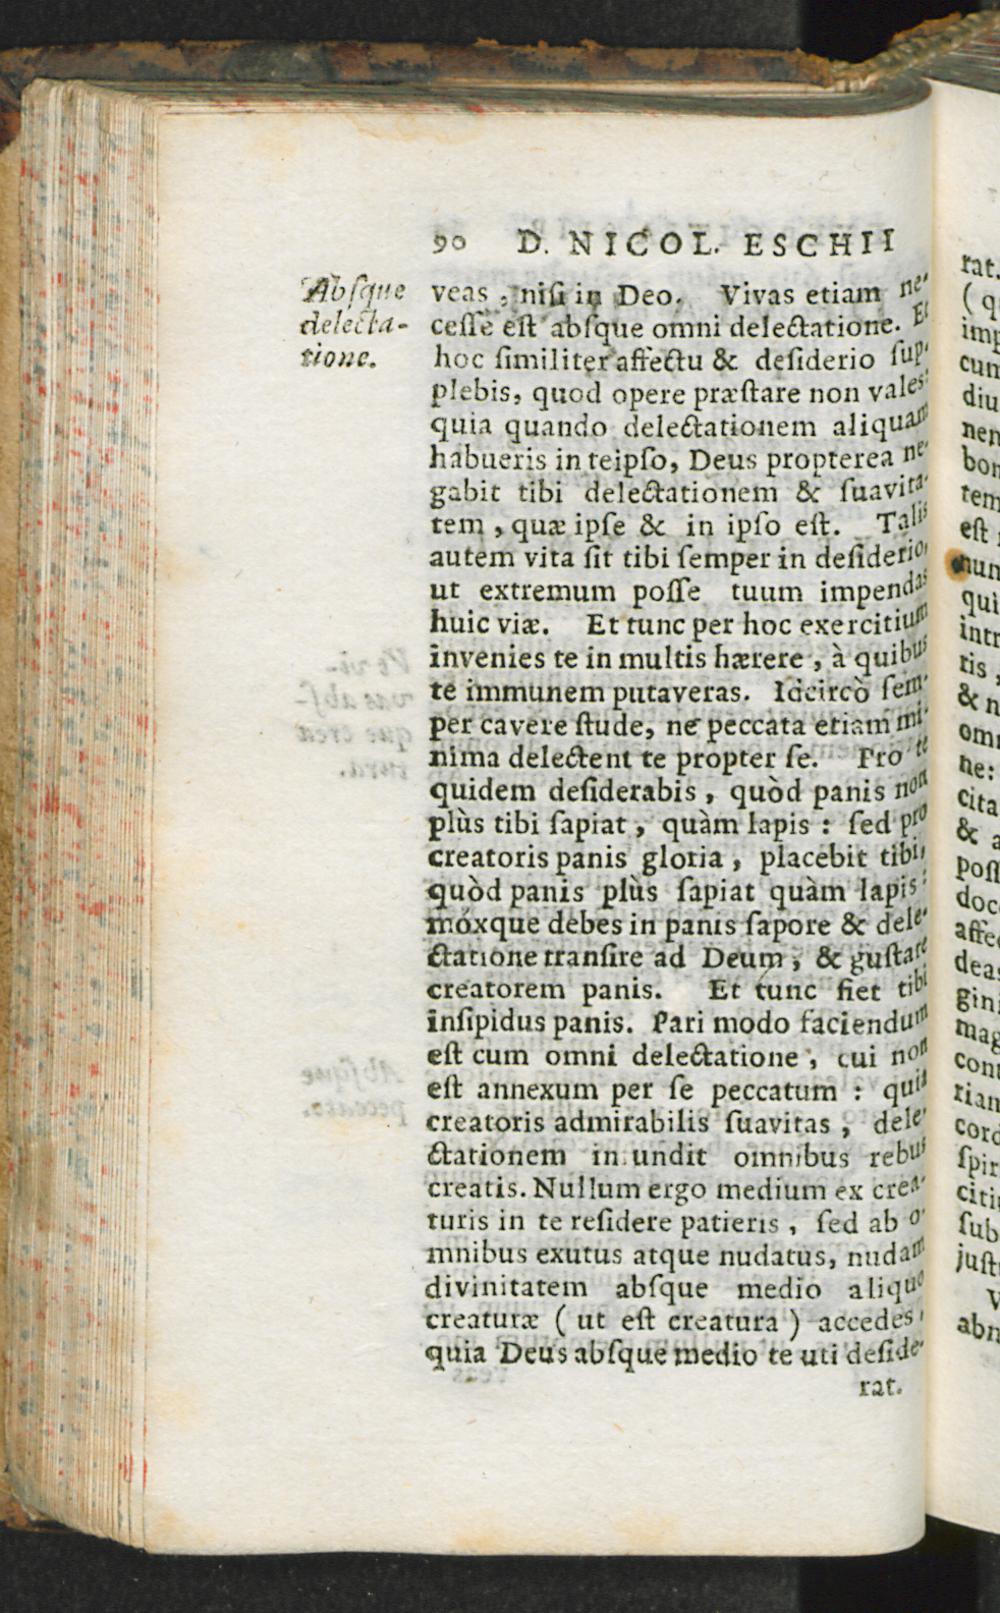 90 D. NICOL. ESCHII
Abſque
delecta-
tione.
veas, niſi in Deo. Vivas etiam ne-
ceſſe eſt abſque omni delectatione. Et
hoc ſimiliter affectu & deſiderio ſup-
plebis, quod opere præſtare non vales:
quia quando delectationem aliquam
habueris in teipſo, Deus propterea ne-
gabit tibi delectationem & ſuavita-
tem, quæ ipſe & in ipſo eſt. Talis
autem vita ſit tibi ſemper in deſiderio,
ut extremum poſſe tuum impendas
huic viæ. Et tunc per hoc exercitium
invenies te in multis hærere, à quibus
te immunem putaveras. Idcircò ſem-
per cavere ſtude, ne peccata etiam mi-
nima delectent te propter ſe. Pro te
quidem deſiderabis, quòd panis non
plùs tibi ſapiat, quàm lapis: ſed pro
creatoris panis gloria, placebit tibi,
quòd panis plùs ſapiat quàm lapis:
móxque debes in panis ſapore & dele-
ctatione tranſire ad Deum, & guſtare
creatorem panis. Et tunc fiet tibi
inſipidus panis. Pari modo faciendum
eſt cum omni delectatione, cui non
eſt annexum per ſe peccatum: quia
creatoris admirabilis ſuavitas, dele-
ctationem in undit omnibus rebus
creatis. Nullum ergo medium ex crea-
turis in te reſidere patieris, ſed ab o-
mnibus exutus atque nudatus, nudam
divinitatem abſque medio aliquo
creaturæ (ut eſt creatura) accedes,
quia Deus abſque medio te uti deſide-
rat.
rat.
(q
imp
cum
diu
nem
bon
tem
eſt
num
qui
intr
tis,
& n
omn
ne:
cita
& a
poſſ
doc
affe
deas
gin
mag
con
rian
cord
ſpir
citi
ſub
juſt
V
abn